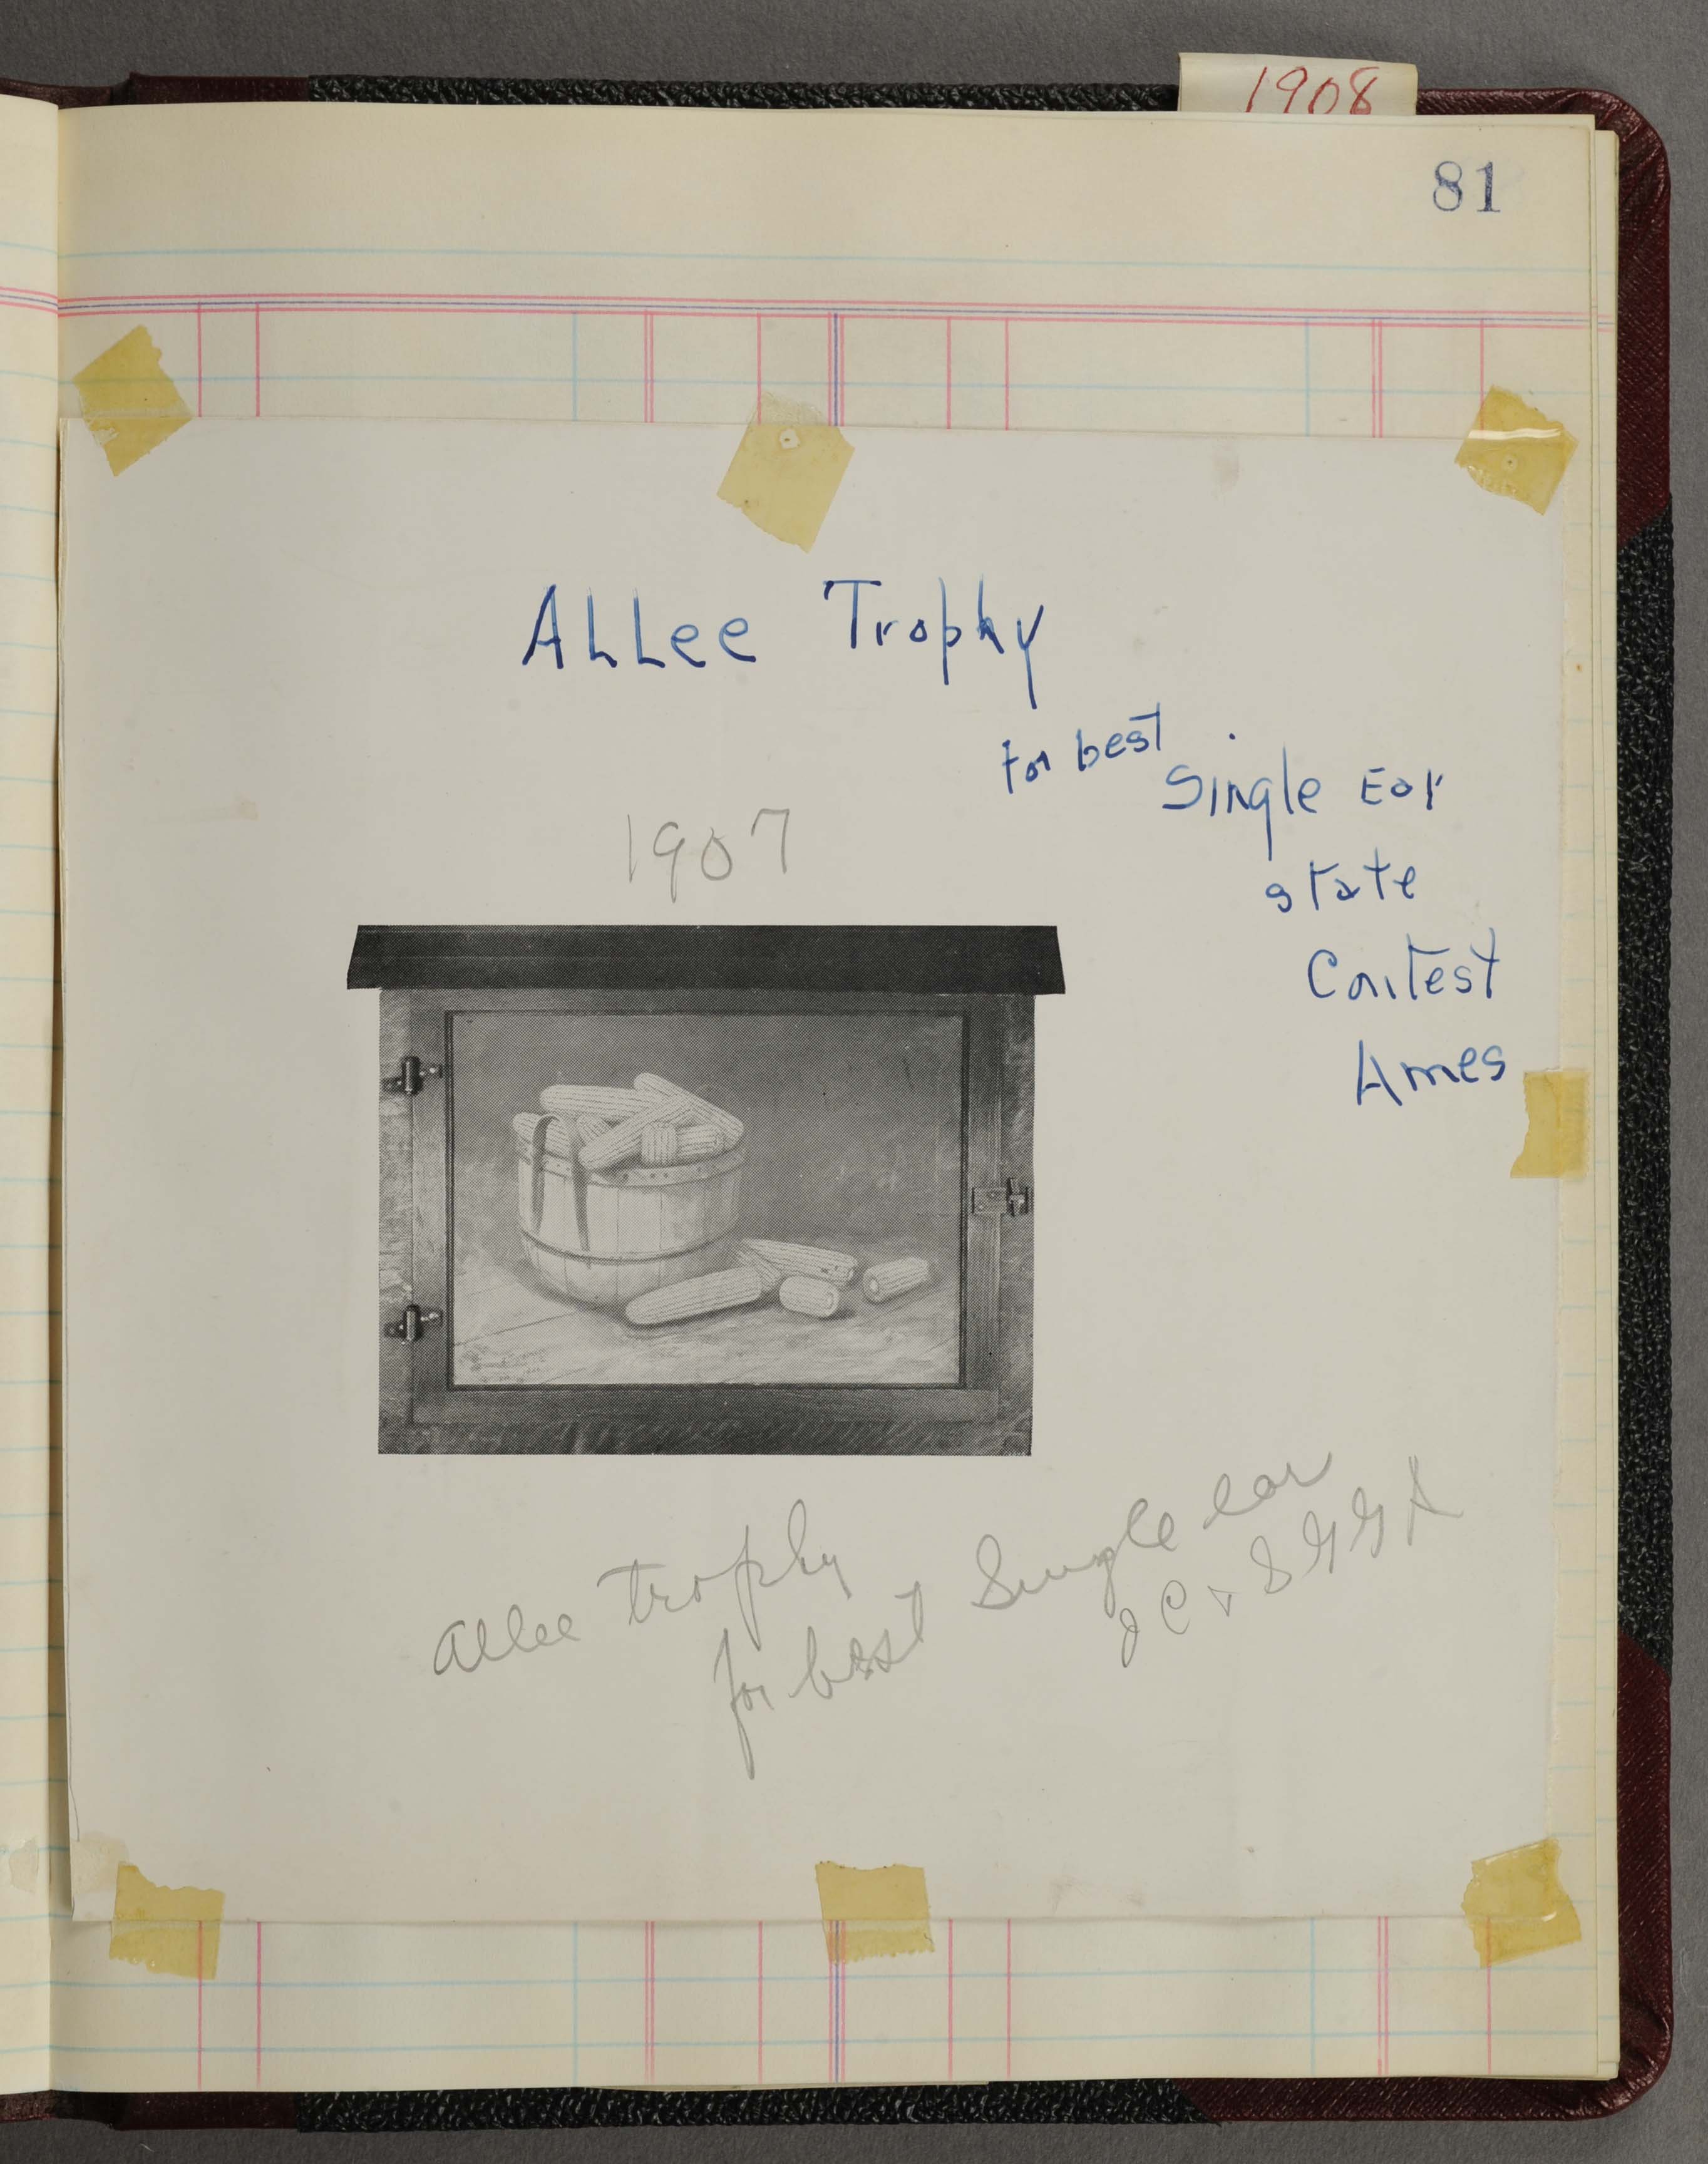 1908
81
ALLee Trophy
for best
Single Ear
state
Contest
Ames
1907
Allee trophy
for best Single ear
I C & S G G A